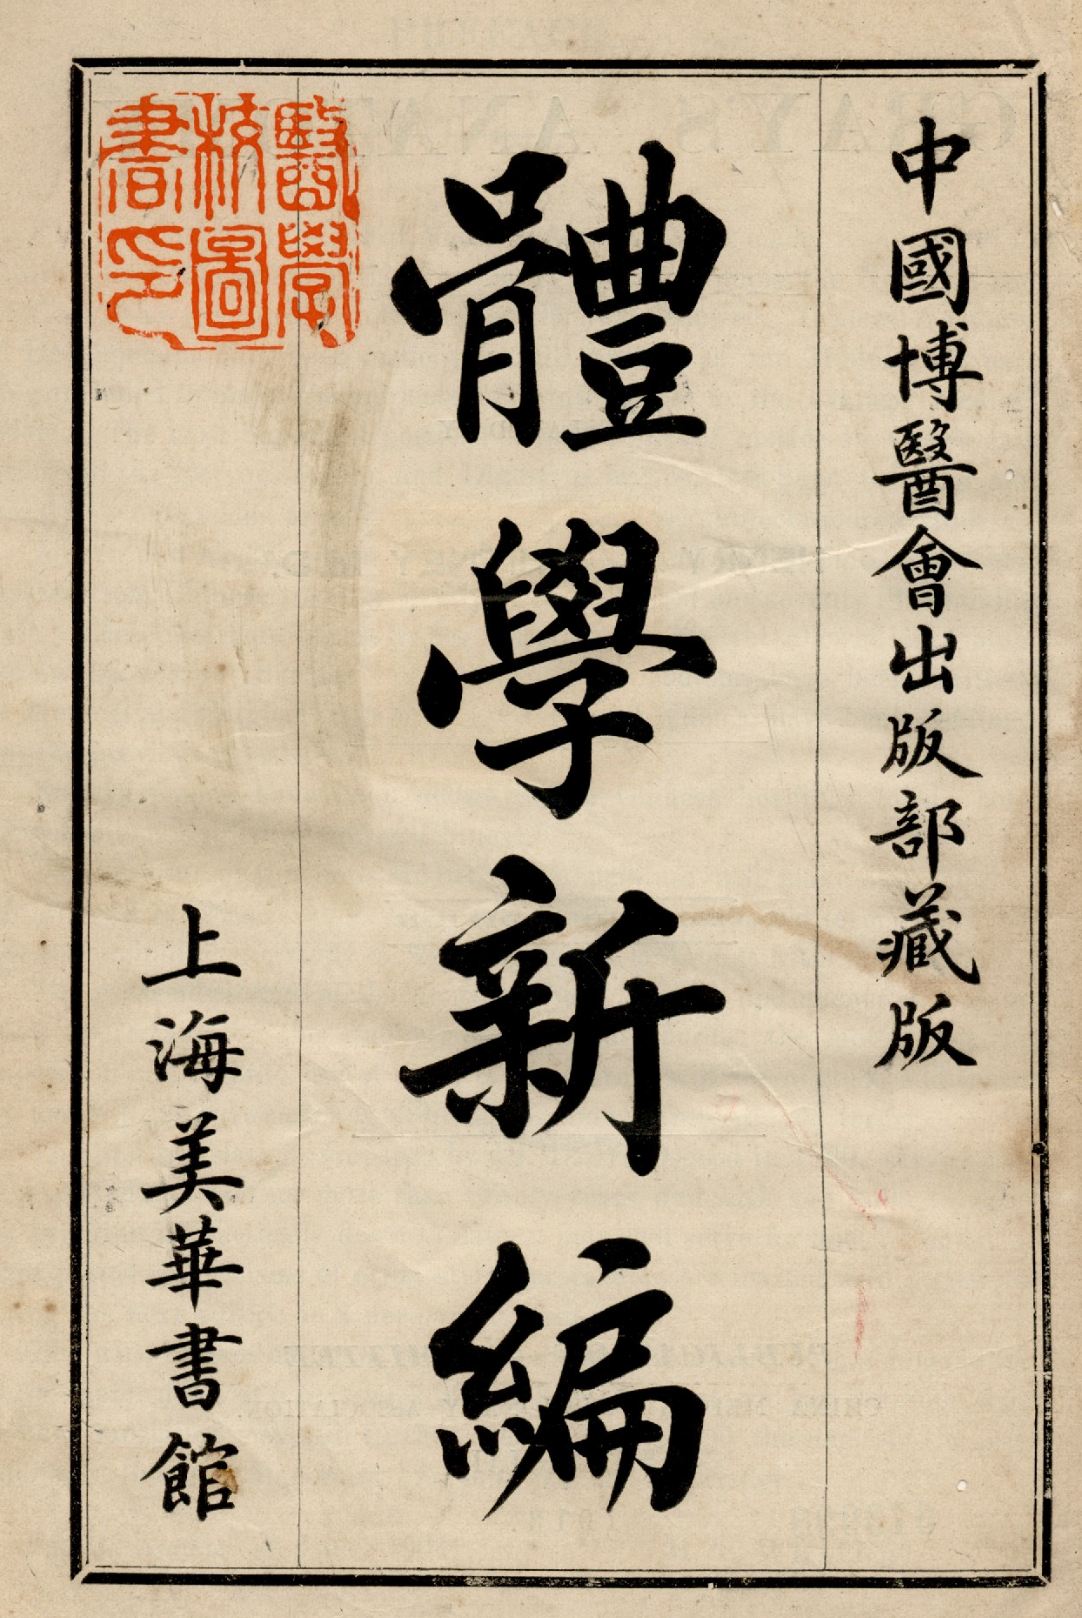 中國博醫會出版部藏版
體學新編
醫學
校圖
書印
上海美華書館